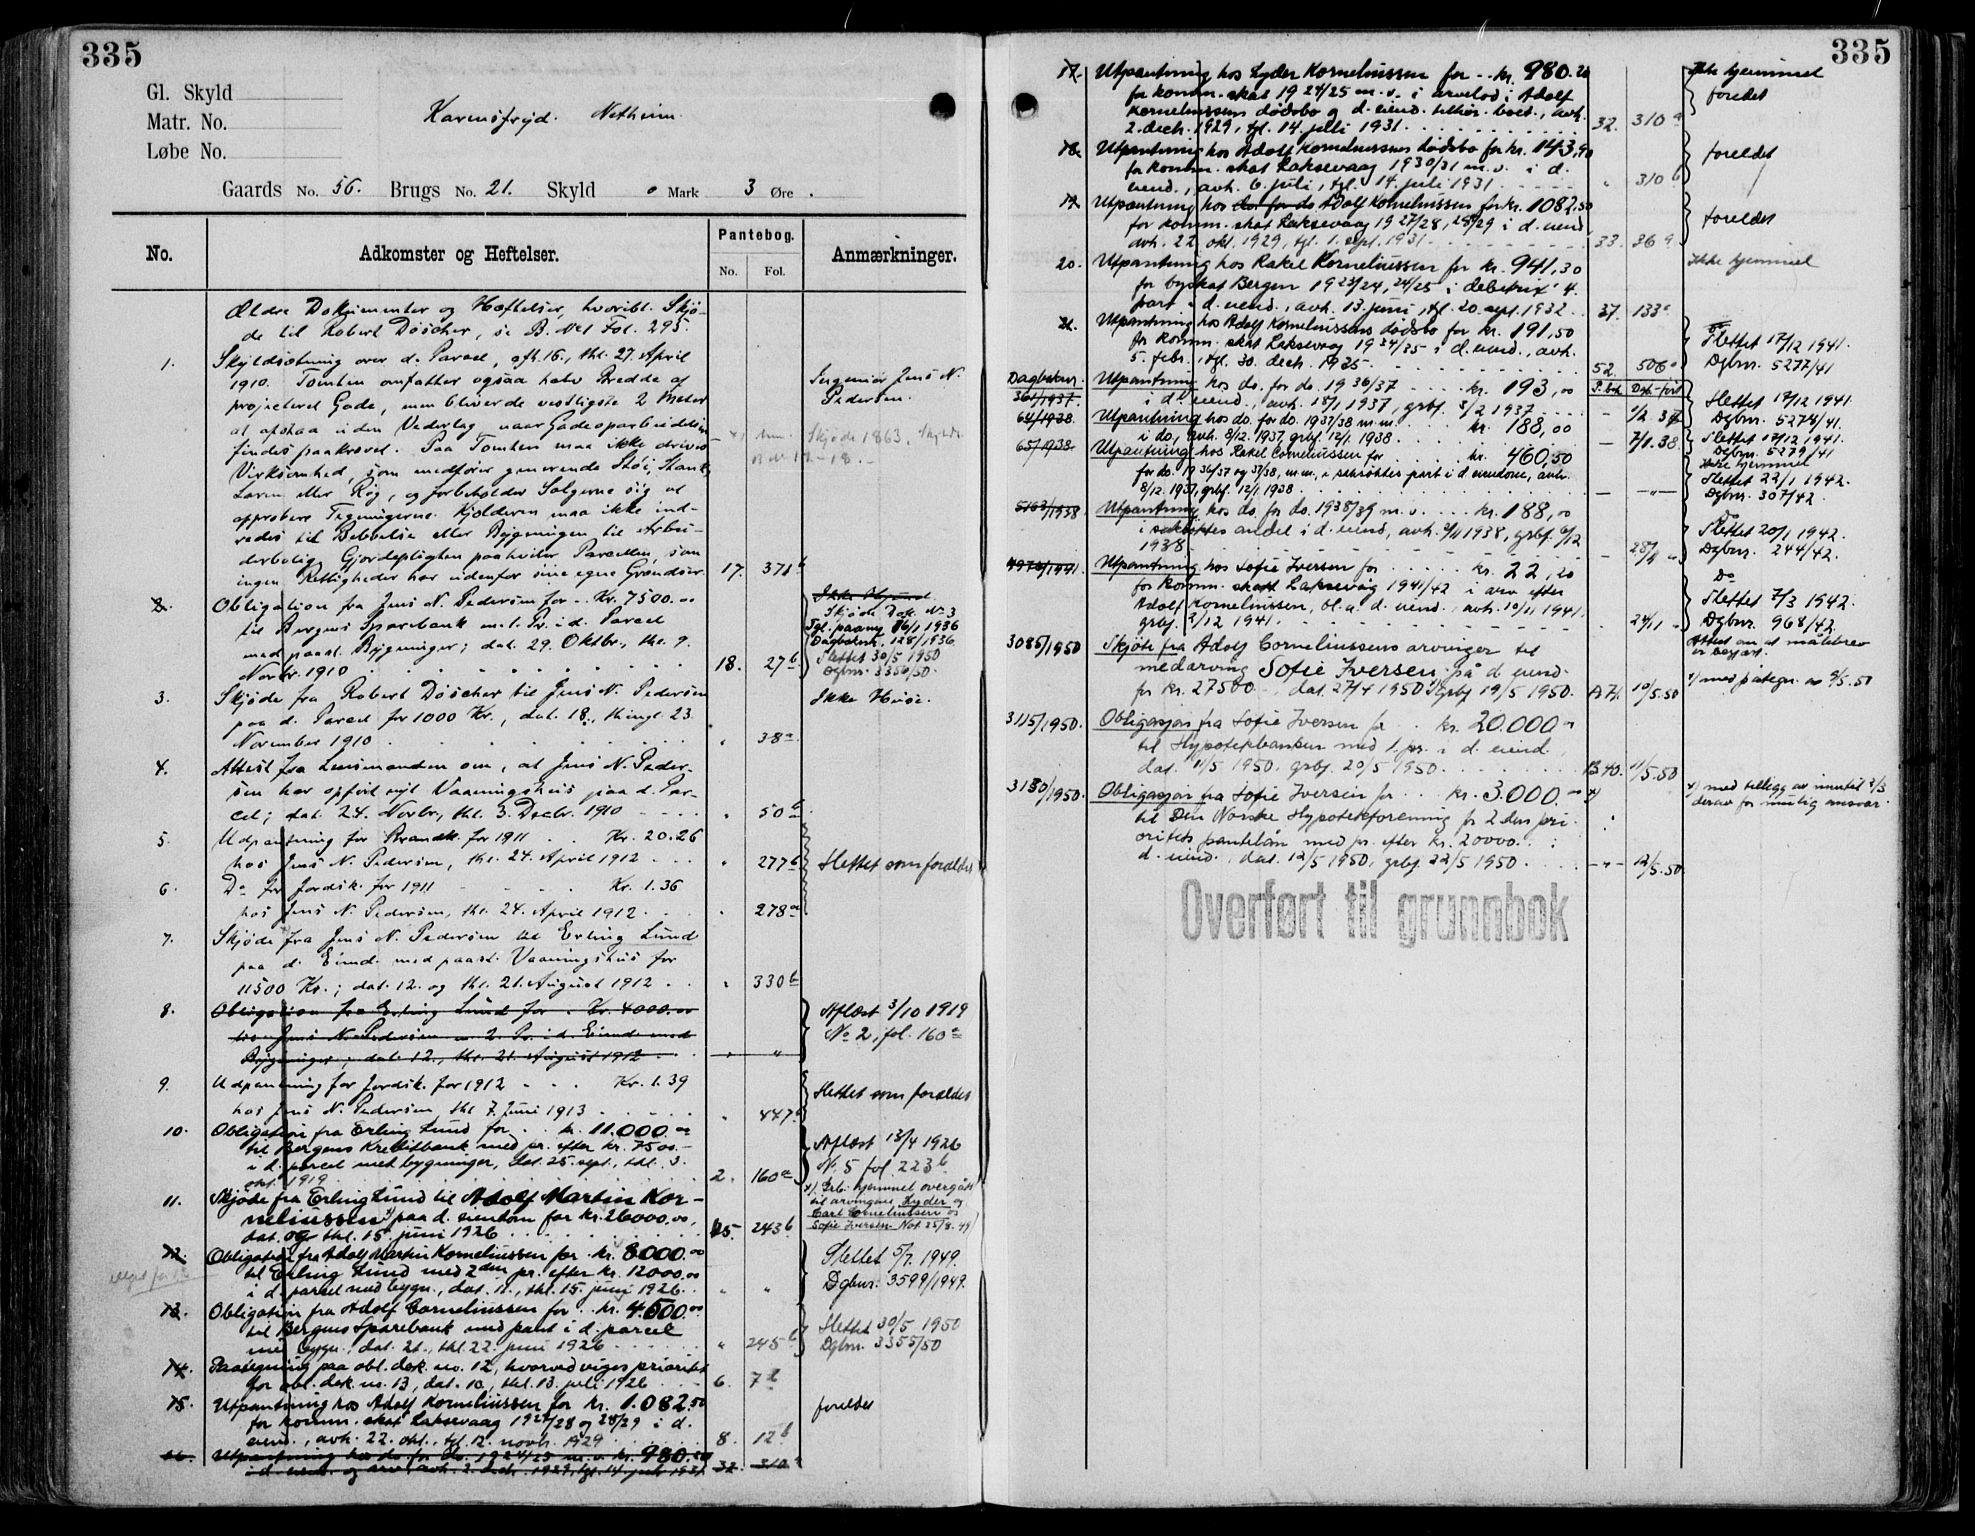 335
Gl. Skyld
Matr. No.
Løbe No.
Karensfryd. Netheim.
Gaards No. 56. Brugs No. 21. Skyld 0 Mark 3 Øre.
No. Adkomster og Heftelser. Pantebog. No. Fol. Anmærkninger.
Ældre Dokumenter og Hæftelser, hvoribl. Skjø-
de til Robert Döscher, se B. No 1 Fol. 295.
1. Skyldsætning over d. Parcel, afh. 16., thl. 27. April
1910. Tomten omfatter ogsaa halv Bredde af
projecteret Gade, men bliver de vestligste 2 Meter
at afstaa uden Vederlag, naar Gadeoparbeidelse
findes paakrævet. Paa Tomten maa ikke drives
Virksomhed, som medfører generende Støi, Stank,
Larm eller Røg, og forbeholder Sælgerne sig at
approbere Tegningerne. Kjælderen maa ikke ind-
redes til Beboelse eller Bygningen til Arbei-
derbolig. Gjerdepligten paahviler Parcellen, som
ingen Rettigheder har udenfor sine egne Grændser. 17. 371 b
Ingeniør Jens N.
Pedersen.
Skjøde 1863,
2. Obligation fra Jens N. Pedersen for - Kr. 7500.00
til Bergens Sparebank m. 1. Pr. i d. Parcel
med paast. Bygninger; dat. 29. Oktbr., thl. 9.
Novbr. 1910 18. 27 b
Skjøde Dok. No 3
Tgl. paany 16/1 1936
Dagboknr. 128/1936
Slettet 30/5 1950
Dgbnr. 3356/50.
3. Skjøde fra Robert Döscher til Jens N. Pedersen
paa d. Parcel for 1000 Kr., dat. 18., thingl. 23.
November 1910 " 38 a
Ikke Huse.
4. Attest fra Lensmanden om, at Jens N. Peder-
sen har opført nyt Vaaningshus paa d. Par-
cel; dat. 24. Novbr., thl. 3. Decbr. 1910 " 50 a
5. Udpantning for Brandk. for 1911 . Kr. 20.26
hos Jens N. Pedersen, thl. 24. April 1912 " 277 b
Slettet som forældet
6. Do for Jordsk. for 1911 - Kr. 1.36
hos Jens N. Pedersen, thl. 24. April 1912 " 278 a
7. Skjøde fra Jens N. Pedersen til Erling Lund
paa d. Eiend. med paast. Vaaningshus for
11500 Kr.; dat. 12. og thl. 21. August 1912 " 330 b
8. Obligation fra Erling Lund for . Kr. 4000.00
til Jens N. Pedersen m. 2. Pr. i d. Eiend. med
Bygninger; dat. 12., thl. 21. August 1912 " "
Aflæst 3/10 1919
No 2, fol. 160 a
9. Udpantning for Jordsk. for 1912 - Kr. 1.39
hos Jens N. Pedersen, thl. 7. Juni 1913 " 447 a
Slettet som forældet
10. Obligation fra Erling Lund for . kr. 11.000.00
til Bergens Kreditbank med pr. efter kr. 7500.-
i d. parcel med bygninger, dat. 25. sept., thl. 3.
okt. 1919 2. 160 a
Aflæst 13/4 1926
N. 5 fol 223 b
11. Skjøde fra Erling Lund til Adolf Martin Kor-
neliussen x) paa d. eiendom for kr. 26000.00,
dat. og thl. 15. juni 1926 15. 243 b
x) Grb. hjemmel overgått
til arvingene Lyder og
Carl Corneliussen og
Sofie Iversen. Not 25/8. 49
12. Obligation fra Adolf Martin Korneliussen for kr. 8000.00
til Erling Lund med 2den pr. efter kr. 12000.00
i d. parcel med bygn., dat. 11., thl. 15. juni 1926. " "
Slettet 5/7. 1949.
Dgbnr. 3599/1949.
13. Obligation fra Adolf Corneliussen for .. kr. 4500.00
til Bergens Sparebank med pant i d. parcel
med bygn., dat. 21., thl. 22. juni 1926 " 245 b
Slettet 30/5 1950
Dgbnr. 3355/50
14. Paategning paa obl. dok. no. 12, hvorved viges prioritet
for obl. dok. no. 13, dat. 10., thl. 13. juli 1926 6. 7 b
15. Utpantning hos Adolf Korneliussen for kr. 1.082.50
for komm. skat Laksevaag 1927/28 og 28/29 i d.
eiend., avh. 22. okt., tgl. 12. novbr. 1929 8. 12 b
foreldet
16. Utpantning hos do. for do. 1924/25 m. v. kr. 980.20
i d. eiend. og arv, avh. 2. decbr. 1929, tgl. 14. juli 1931. 32. 310 a
335
17. Utpantning hos Lyder Korneliussen for - kr. 980.20
for komm. skat 1924/25 m. v. i arvelod i Adolf
Korneliussens dødsbo og d. eiend. tilhør. boet, avh.
2. decb. 1929, tgl. 14. juli 1931. 32. 310 a
Ikke hjemmel
foreldet
18. Utpantning hos Adolf Korneliussens dødsbo for kr. 143,90
for komm. skat Laksevaag 1930/31 m. v. i d.
eiend., avh. 6. juli, tgl. 14. juli 1931. " 310 b
foreldet
19. Utpantning hos do. for do Adolf Korneliussen for kr. 1082.50
for komm. skat Laksevaag 1927/28, 28/29 i d. eiend.
avh. 22. okt. 1929, tgl. 1. sept. 1931 33. 36 a
foreldet
20. Utpantning hos Rakel Korneliussen for kr. 941,30
for byskat Bergen 1923/24, 24/25 i debitrix' 4.
part i d. eiend., avh. 13. juni, tgl. 20. sept. 1932. 37. 133 a
Ikke hjemmel
21. Utpantning hos Adolf Korneliussens dødsbo for kr. 191,50
for komm. skat Laksevåg 1934/35 i d. eiend., avh.
5. febr., tgl. 30. decb. 1935 52. 506 a
Slettet 17/12 1941.
Dgbnr. 5277/41
Dagboknr. P. bok Dok-furt
361/1937. Utpantning hos do. for do. 1936/37 kr. 193,00
i d. eiend., avh. 15/1 1937, grbf. 3/2 1937 - 1/2 37
Slettet 17/12 1941.
Dgbnr. 5278/41.
64/1938. Utpantning hos do. for do. 1937/38 m. m. kr. 188,00
i do., avh. 8/12. 1937, grbf. 12/1. 1938 - 7/1. 38
Slettet 17/12 1941.
Dgbnr. 5279/41
65/1938. Utpantning hos Rakel Corneliussen for kr. 460,50
for do. 1936/37 og 37/38, m. m., i saksøktes part i d. eiendom, avh.
8/12. 1937, grbf. 12/1 1938 - - " -
Ikke hjemmel
Slettet 22/1 1942.
Dgbnr. 307/42.
5163/1938. Utpantning hos do. for do. 1938/39 m. v. kr. 188,00
i saksøktes andel i d. eiend., avh. 2/11 1938, grbf. 6/12
1938
Do
Slettet 20/1 1942.
Dgbnr. 244/42.
4976/1941. Utpantning hos Sofie Iversen for kr. 22,20
for komm. skatt Laksevåg 1941/42 i arv efter
Adolf Korneliussen, bl. a. d. eiend., avh. 10/11 1941.
grbf. 2/12 1941. - 24/11 -
Do
Slettet 7/3 1942.
Dgbnr. 968/42.
3085/1950 Skjøte fra Adolf Corneliussens arvinger til
medarving Sofie Iversen på d. eiend.
for kr. 27500 -, dat. 27/4 1950 x) grbf 19/5 1950. A 71. 10/5. 50
Attest om at målebrev
er begjært.
x) med påtegn. av 9/5. 50
3115/1950. Obligasjon fra Sofie Iversen for .. kr. 20.000.00
til Hypotekbanken med 1. pr. i d. eiend.,
dat. 11/5 1950, grbf. 20/5 1950. B 40. 11/5. 50
3130/1950. Obligasjon fra Sofie Iversen for .. kr. 3.000.00 x)
til Den Norske Hypotekforening for 2den pri-
oritets pantelån med pr. efter kr. 20000.- i
d. eiend., dat. 12/5 1950, grbf. 22/5 1950. - " - 12/5. 50
x) med tillegg av inntil 2/3
derav for mulig ansvar.
Overført til grunnbok